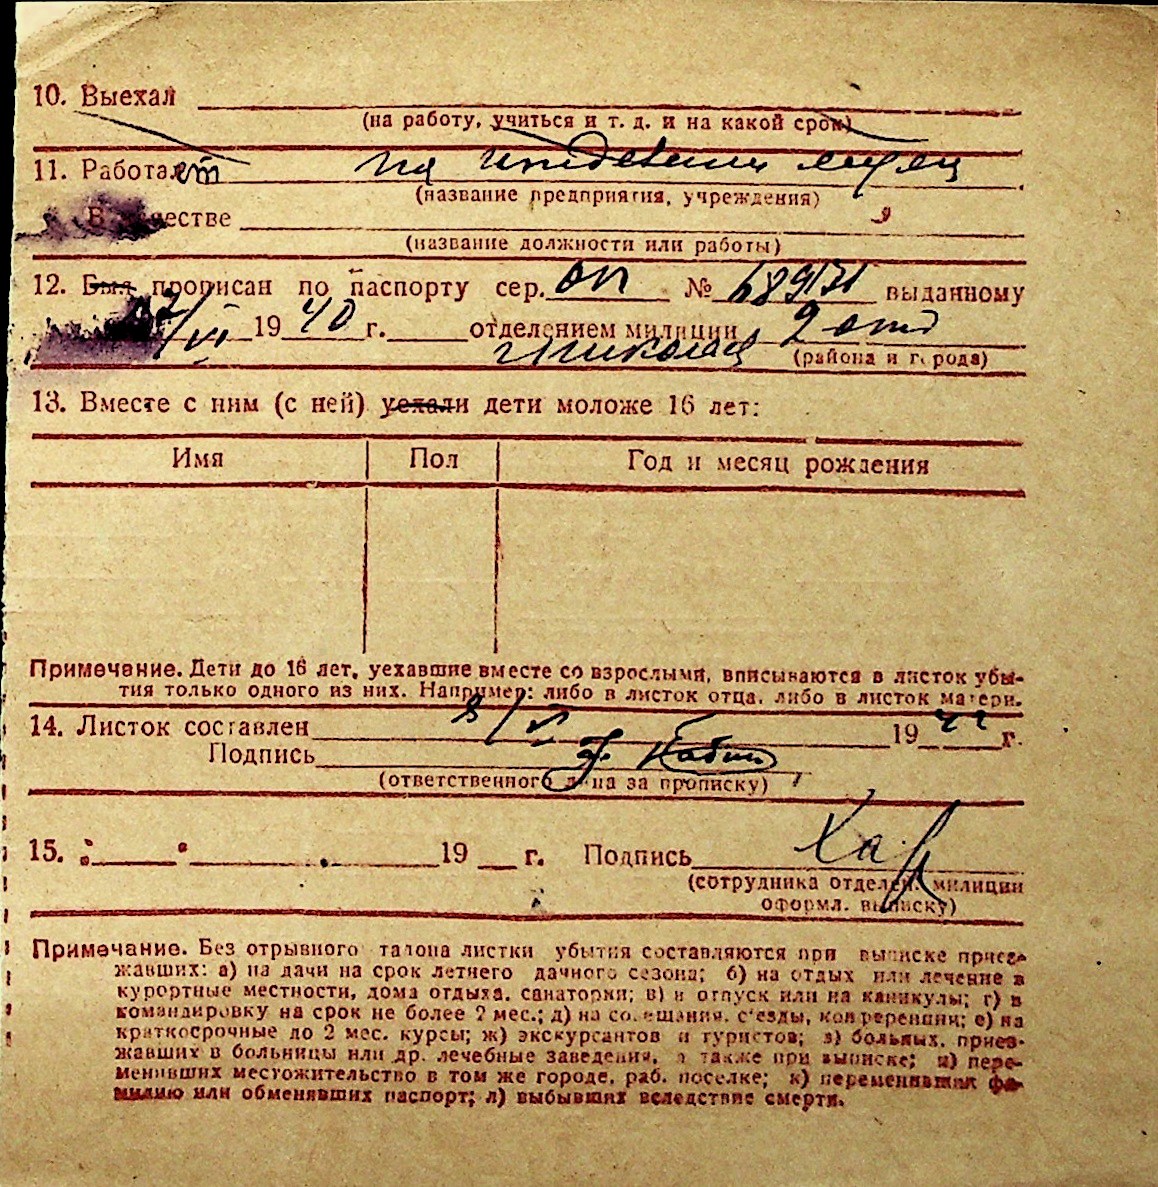 10. Выехал
(на работу, учиться и т. д. и на какой срок)
11. Работает на иждевении
(название предприятия, учреждения)
В качестве
(название должности или работы)
12. Был прописан по паспорту сер. ОП № 689131 выданному
VI 1940 г. отделением милиции 2 отд
(района и города)
13. Вместе с ним (с ней) уехали дети моложе 16 лет:
Имя Пол Год и месяц рождения
Примечание. Дети до 16 лет, уехавшие вместе со взрослыми, вписываются в листок убы-
тия только одного из них. Например: либо в листок отца, либо в листок матери.
14. Листок составлен 8/VI 19 г.
Подпись
(ответственного лица за прописку)
15. 19 г. Подпись Хар
(сотрудника отделен. милиции
оформл. выписку)
Примечание. Без отрывного талона листки убытия составляются при выписке приез-
жавших: а) на дачи на срок летнего дачного сезона; б) на отдых или лечение в
курортные местности, дома отдыха, санатории; в) в отпуск или на каникулы; г) в
командировку на срок не более 2 мес.; д) на совещания, с'езды, конференции; е) на
краткосрочные до 2 мес. курсы; ж) экскурсантов и туристов; з) больных, приез-
жавших в больницы или др. лечебные заведения, а также при выписке; и) пере-
менивших местожительство в том же городе, раб. поселке; к) переменивших фа-
милию или обменявших паспорт; л) выбывших вследствие смерти.